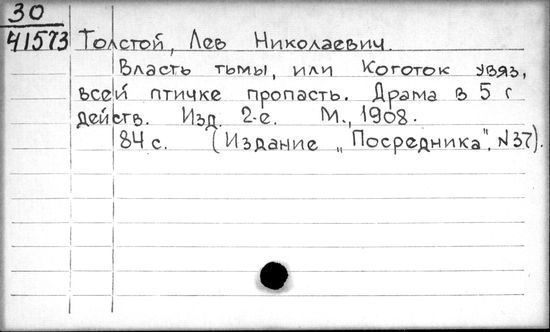 30
41573 Толстой, Лев Николаевич.
Власть тьмы, или Коготок увяз,
всей птичке пропасть. Драма в 5 г
действ. Изд. 2-е. М., 1908.
84 с. (Издание „Посредника", №37).